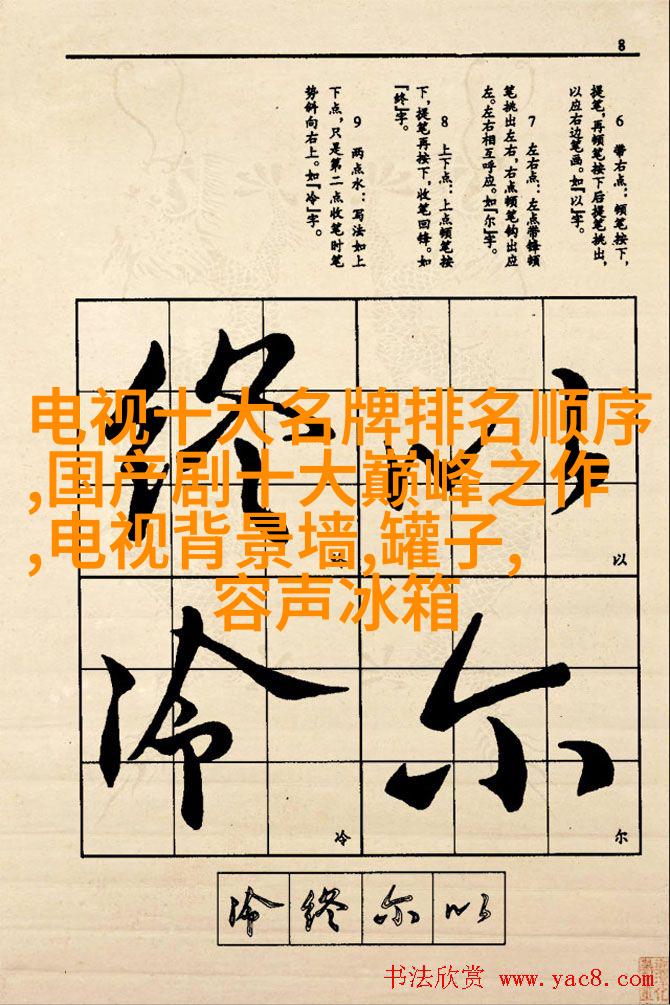 8
6 带右点：顿笔按下，
提笔，再顿笔按下后提笔挑出，
以应右边笔画。如『以』字。
7 左右点：左点带锋顿
笔挑出左右，右点顿笔钩出应
左。左右相互呼应。如『尔』字。
8 上下点：上点顿笔按
下，提笔再按下，收笔回锋。如
『终』字。
9 两点水：写法如上
下点，只是第二点收笔时笔
势斜向右上。如『冷』字。
电视十大名牌排名顺序
,国产剧十大巅峰之作
,电视背景墙,罐子,
容声冰箱
以
终
尔
冷
以
尔
冷
冷 终 尔 以
书法欣赏 www.yac8.com